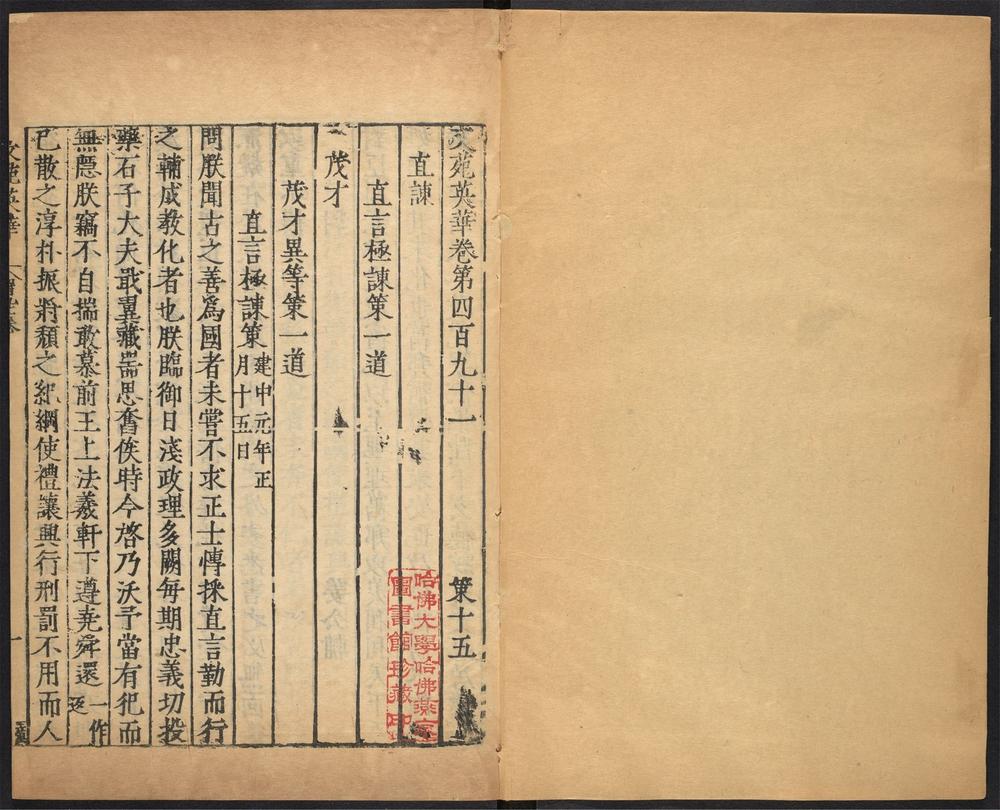 文苑英華卷第四百九十一 策十五
直諫
直言極諫策一道
茂才
茂才異等策一道
直言極諫策 建中元年正
月十五日
問朕聞古之善爲國者未嘗不求正士愽採直言勤而行
之輔成教化者也朕臨御日淺政理多闕每期忠義切投
藥石子大夫戢翼藏器思奮俟時今啓乃沃予當有犯而
無隱朕竊不自揣敢慕前王上法羲軒下遵堯舜還 一作
返
已散之淳朴振將頽之紀綱使禮讓興行刑罰不用而人
文苑英華
一
哈佛大學哈佛燕京
圖書館珍藏印